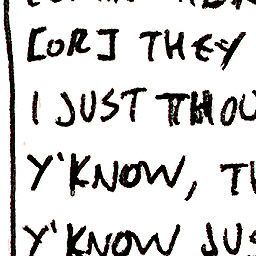 [OR] THEY
I JUST THOU
Y'KNOW, TH
Y'KNOW JUS